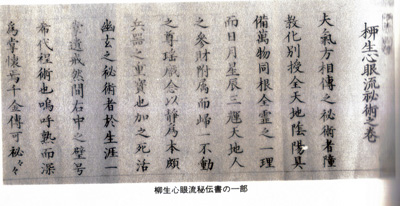 柳生心眼流秘術之巻
夫氣方相傳之秘術者陸
教化別授全天地陰陽具
備萬物同根全霊之一理
而日月星辰三運天地人
之参財附腐而帰一不動
之尊瑤戯念以静為本頗
兵器之重寳也加之死活
幽玄之秘術者於生涯一
堂遺戒然間右申之壁号
希代程術也嗚呼熟而深
為掌懐焉千金傳可秘々々
柳生心眼流秘伝書の一部